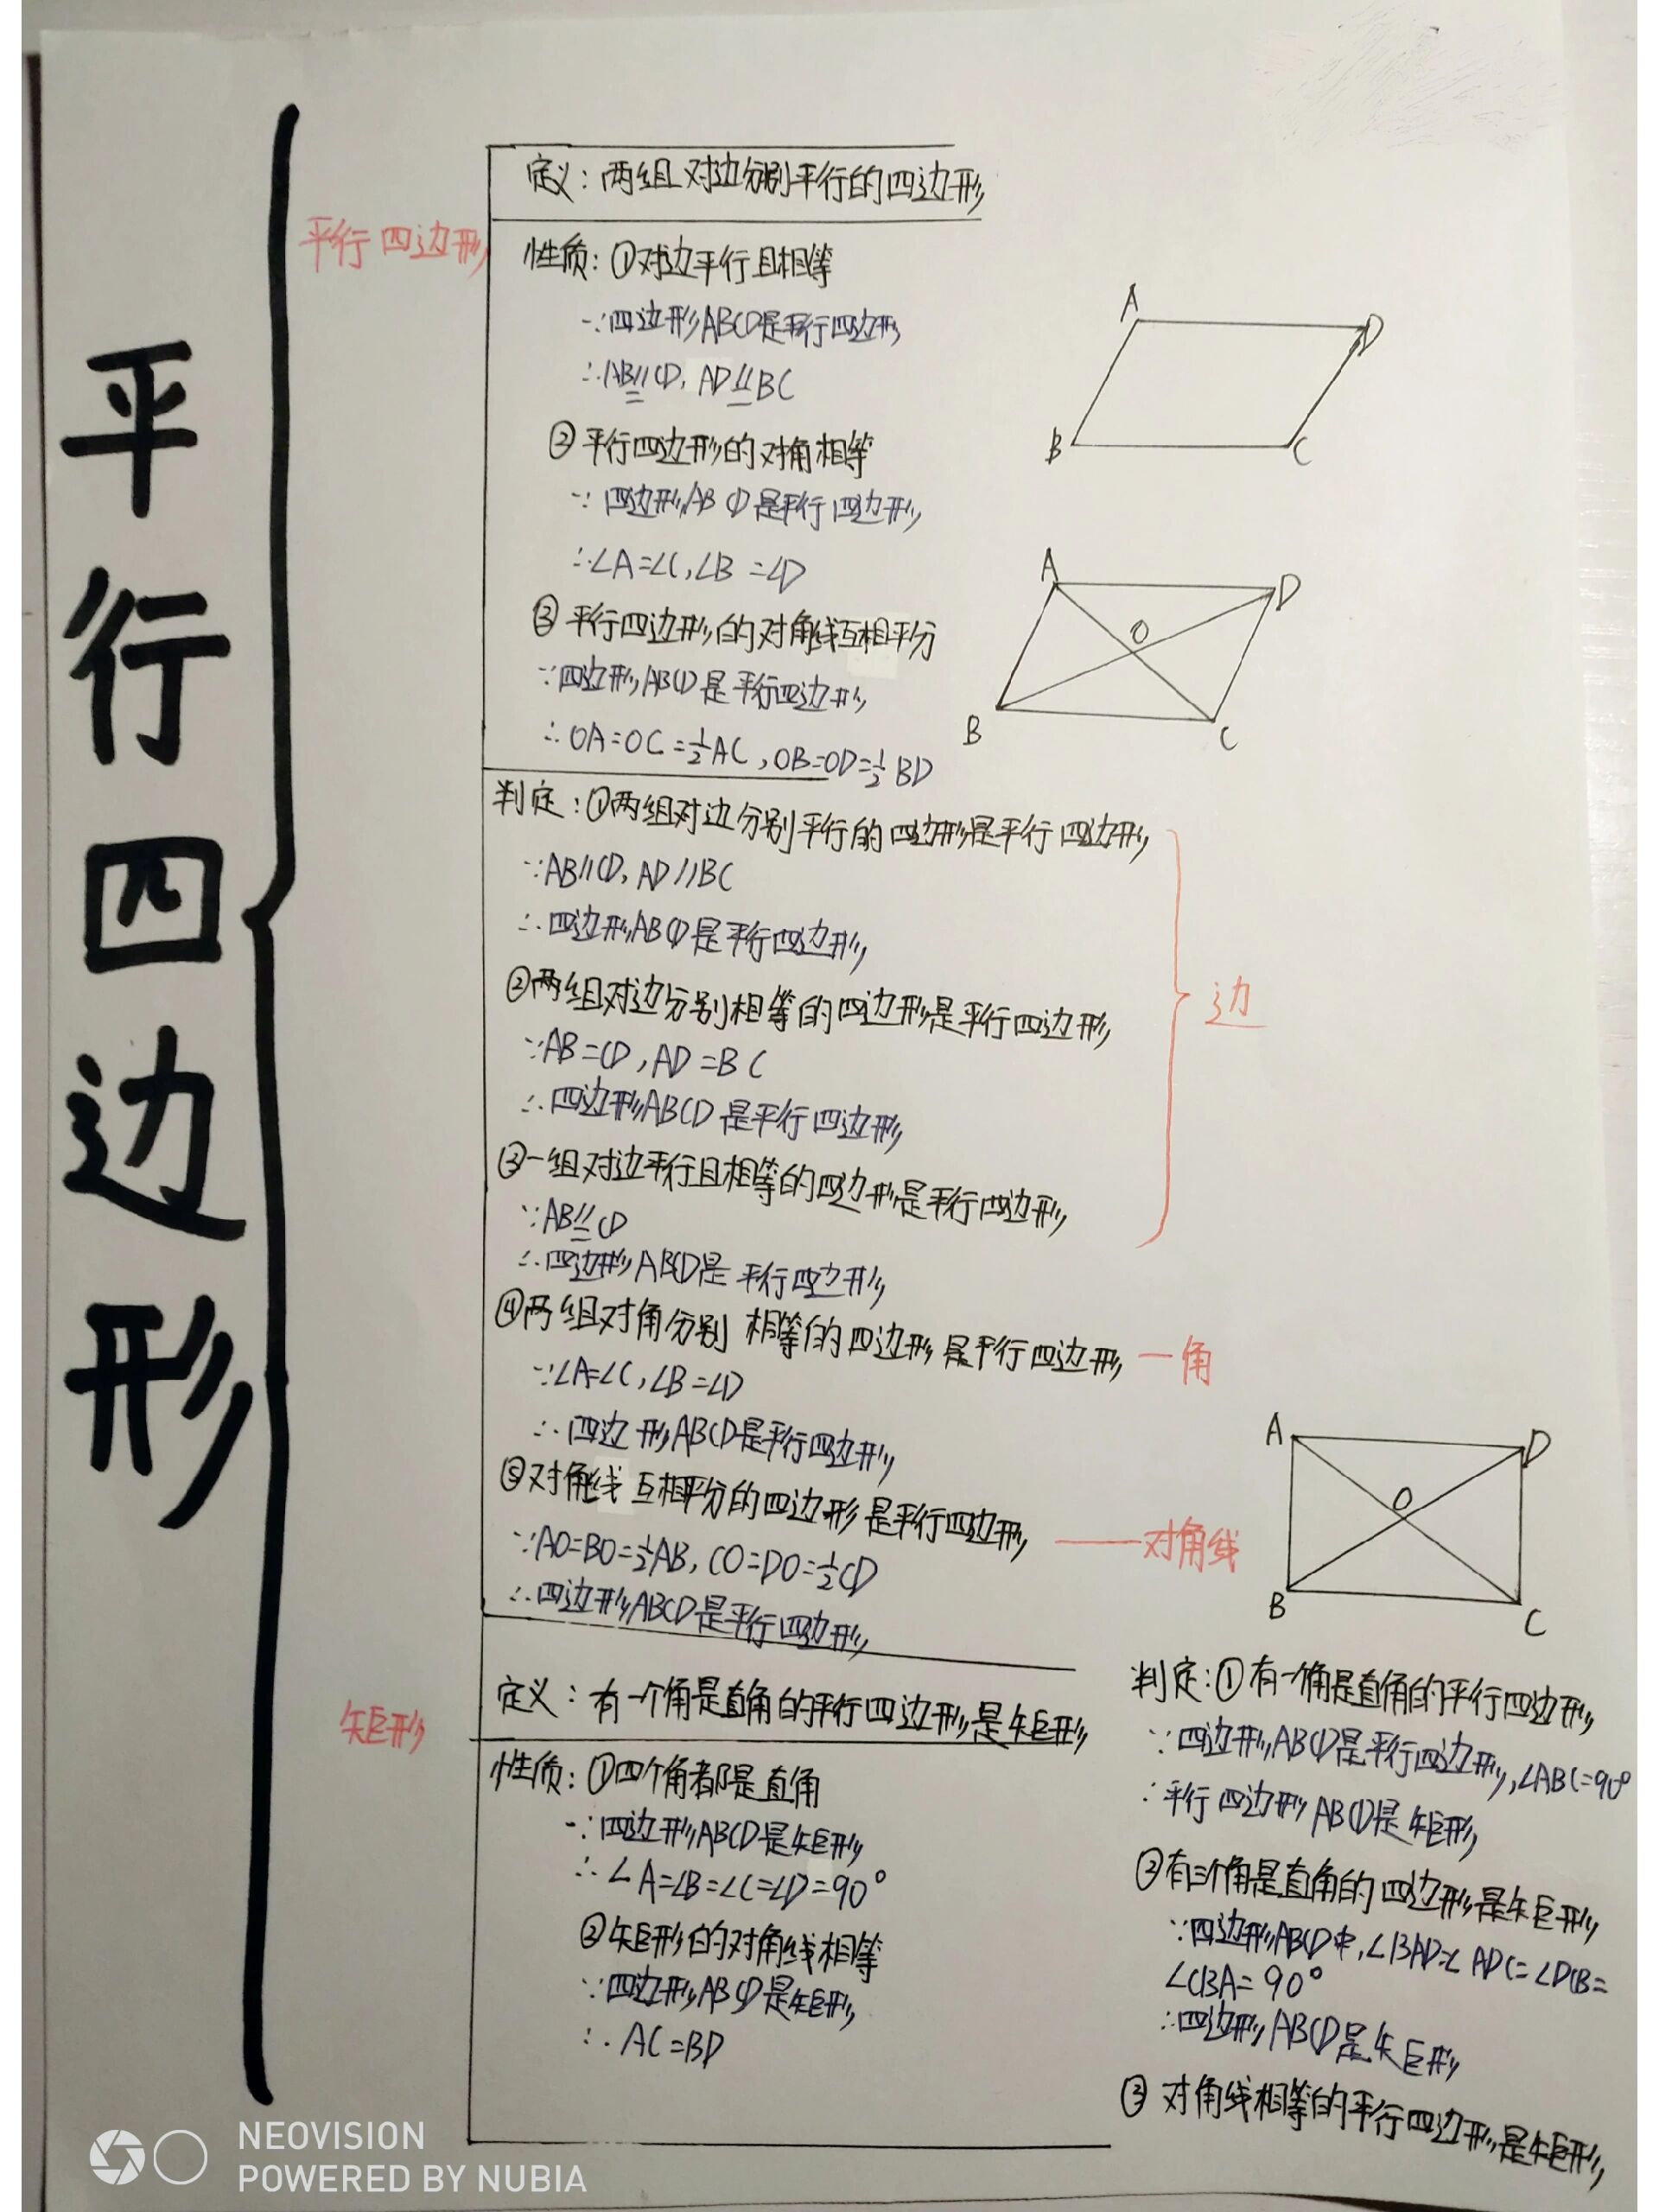 平行四边形
平行四边形
定义：两组对边分别平行的四边形
性质：①对边平行且相等
∵四边形ABCD是平行四边形
∴AB∥=CD，AD∥=BC
②平行四边形的对角相等
∵四边形ABCD是平行四边形
∴∠A=∠C，∠B=∠D
③平行四边形的对角线互相平分
∵四边形ABCD是平行四边形
∴OA=OC=½AC，OB=OD=½BD
A
D
B
C
A
D
O
B
C
判定：①两组对边分别平行的四边形是平行四边形
∵AB∥CD，AD∥BC
∴四边形ABCD是平行四边形
②两组对边分别相等的四边形是平行四边形
∵AB=CD，AD=BC
∴四边形ABCD是平行四边形
③一组对边平行且相等的四边形是平行四边形
∵AB∥=CD
∴四边形ABCD是平行四边形
边
④两组对角分别相等的四边形是平行四边形 一角
∵∠A=∠C，∠B=∠D
∴四边形ABCD是平行四边形
⑤对角线互相平分的四边形是平行四边形 ——对角线
∵AO=BO=½AB，CO=DO=½CD
∴四边形ABCD是平行四边形
A
D
O
B
C
矩形
定义：有一个角是直角的平行四边形是矩形
性质：①四个角都是直角
∵四边形ABCD是矩形
∴∠A=∠B=∠C=∠D=90°
②矩形的对角线相等
∵四边形ABCD是矩形
∴AC=BD
判定：①有一个角是直角的平行四边形
∵四边形ABCD是平行四边形，∠ABC=90°
∴平行四边形ABCD是矩形
②有三个角是直角的四边形是矩形
∵四边形ABCD中，∠BAD=∠ADC=∠DCB=
∠CBA=90°
∴四边形ABCD是矩形
③对角线相等的平行四边形是矩形
NEOVISION
POWERED BY NUBIA